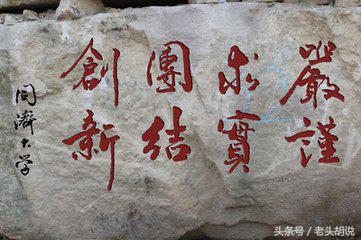 嚴謹
求實
團結
創新
同濟大学
头条号／老头胡说